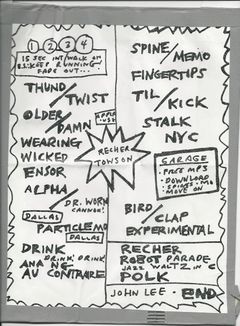 1 2 3 4
15 SEC INT/WALK ON
KEEP RUNNING
FADE OUT...
THUND/
TWIST
OLDER/
DAMN
APPLE
WEARING
WICKED
ENSOR
ALPHA/
DR. WORM
CANNONS!
DALLAS
PARTICLE MO
DALLAS
DRINK
DRINK, DRINK
ANA NG
AU CONTRAIRE
RECHER
TOWSON
SPINE/
MEMO
FINGERTIPS
TIL/
KICK
STALK
NYC
GARAGE
- FREE MP3
- DOWNLOAD
- SPINES, MO
MOVE ON
BIRD/
CLAP
EXPERIMENTAL
RECHER
ROBOT PARADE
JAZZ WALTZ IN C
POLK
JOHN LEE · END